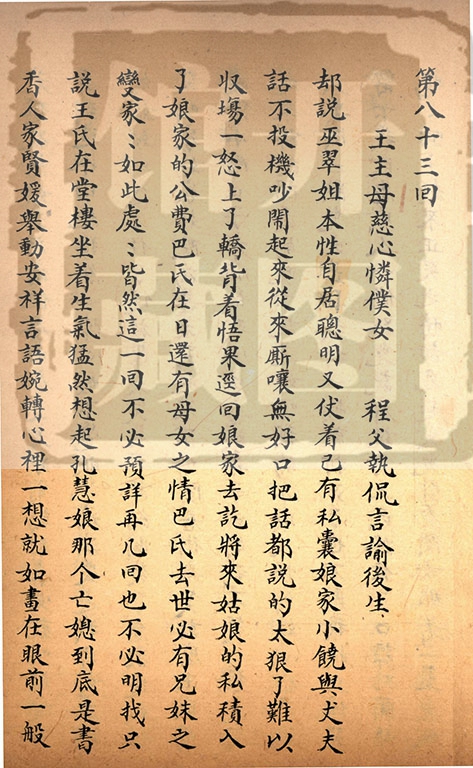 第八十三回
王主母慈心憐僕女　程父執侃言諭後生
却說巫翠姐本性自居聰明又仗着己有私囊娘家小饒與丈夫
話不投機吵鬧起來從來厮嚷無好口把話都說的太狠了難以
収塲一怒上了轎背着悟果逕回娘家去訖將來姑娘的私積入
了娘家的公費巴氏在日還有母女之情巴氏去世必有兄妹之
變家〻如此處〻皆然這一回不必預詳再几回也不必明找只
說王氏在堂樓坐着生氣猛然想起孔慧娘那个亡媳到底是書
香人家賢媛舉動安祥言語婉轉心裡一想就如畫在眼前一般
開圖
館藏